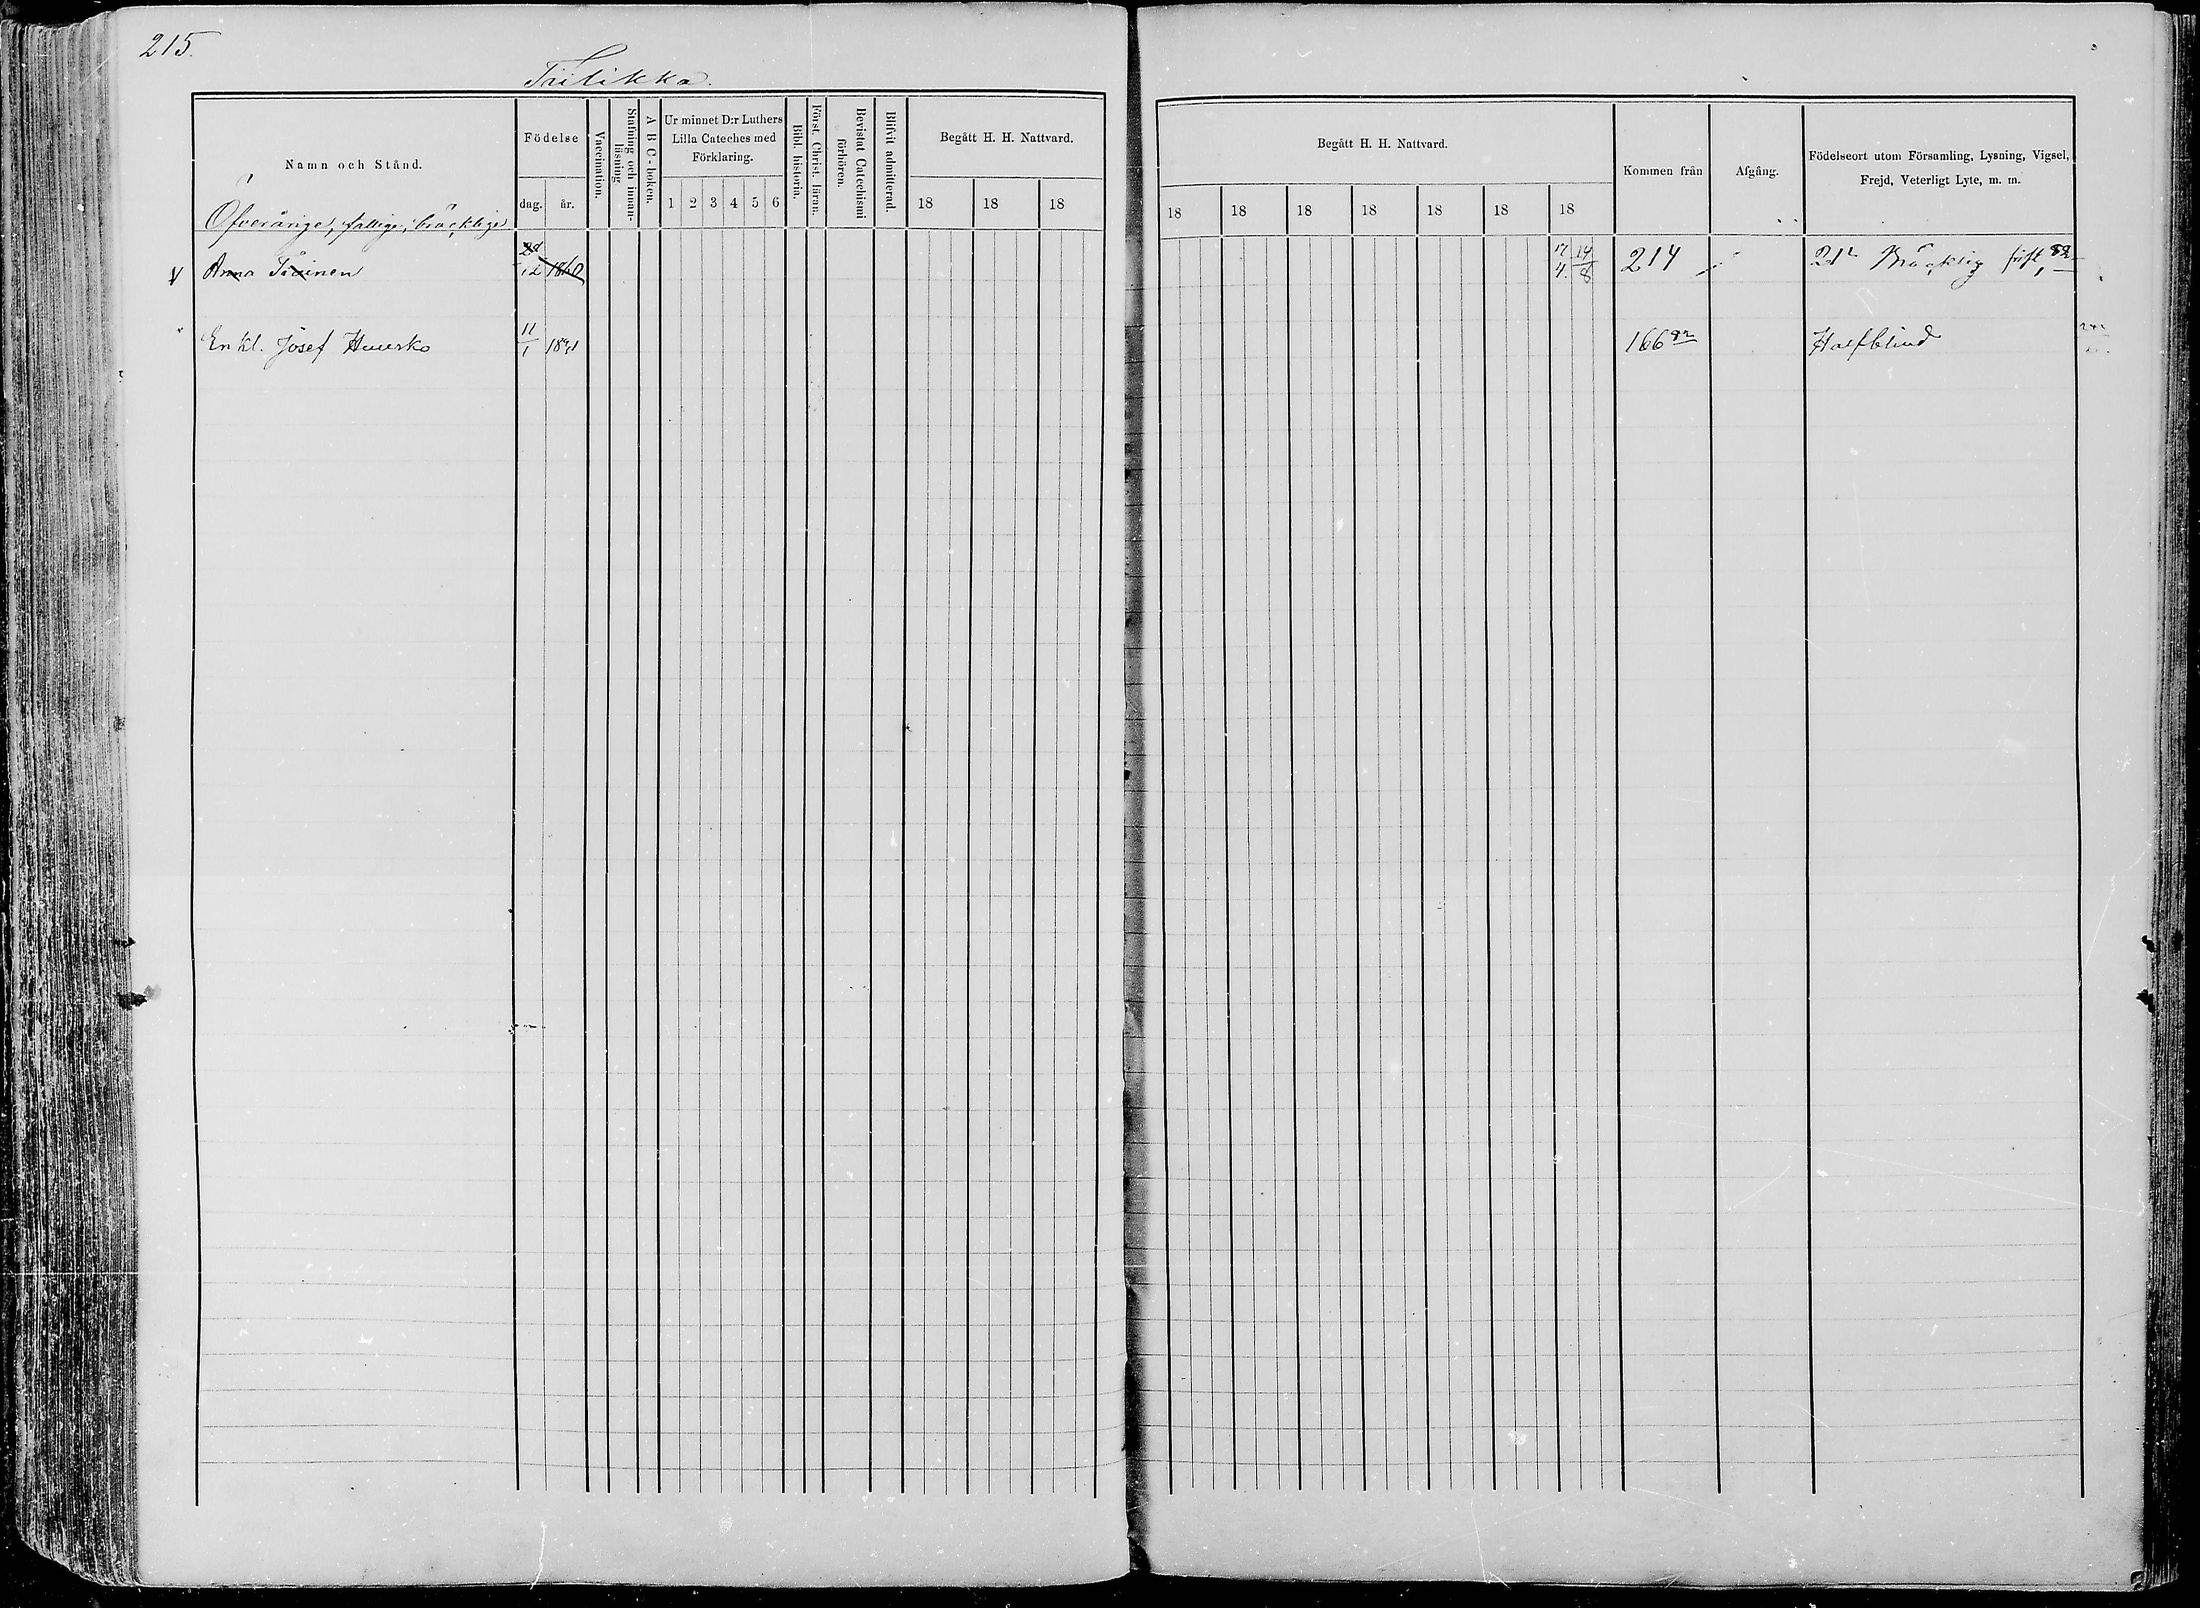 215.
Tiilikka.
Namn och Stånd.
Födelse
dag.
år.
Vaccination.
Stafning och innan-
läsning
A B C-boken.
Ur minnet D:r Luthers
Lilla Cateches med
Förklaring.
1 2 3 4 5 6
Bibl. historia.
Först. Christ. läran.
Bevistat Catechismi
förhören.
Blifvit admitterad.
Begått H. H. Nattvard.
18 18 18
Begått H. H. Nattvard.
18 18 18 18 18 18 18
Kommen från
Afgång.
Födelseort utom Församling, Lysning, Vigsel,
Frejd, Veterligt Lyte, m. m.
Öfverårige, fattige, bräcklige
Anna 12 1860 17/4 14/8 214 Bräcklig 82
Enkl. Josef 11/1 166 82 Halfblind